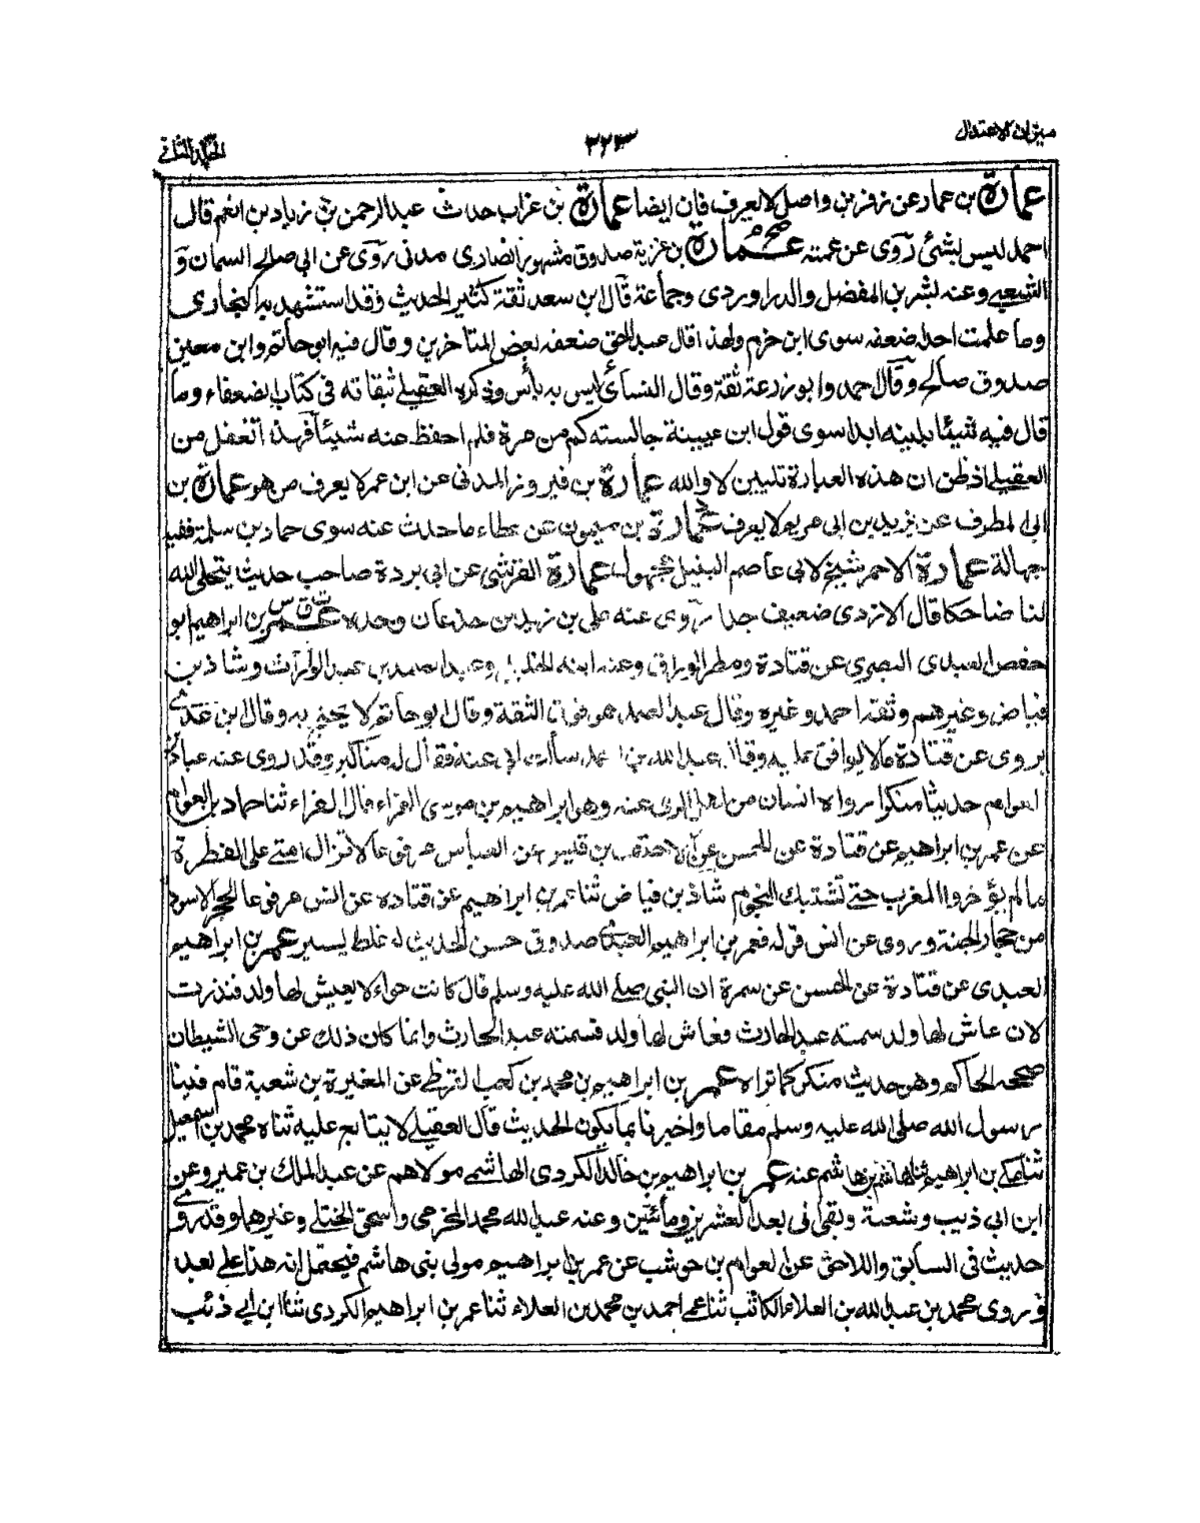 ميزان الاعتدال
٣٢٣
الجلد الثاني
عمارة بن عمار عن زفر بن واصل لا يعرف فان ايضا عمارة بن غراب حدث عبد الرحمن بن زياد بن انعم قال
احمد ليس بشئ روى عن عمته عمارة بن غزية صدوق مشهور انصاري مدني روى عن ابي صالح السمان و
الشعبي وعنه بشر بن المفضل والدراوردي وجماعة قال ابن سعد ثقة كثير الحديث وقد استشهد به البخاري
وما علمت احدا ضعفه سوى ابن حزم ولهذا قال عبد الحق ضعفه بعض المتاخرين وقال فيه ابو حاتم وابن معين
صدوق صالح وقال احمد وابو زرعة ثقة وقال النسائي ليس به بأس وذكره العقيلي ثقاته في كتاب الضعفاء وما
قال فيه شيئا يلينه ابدا سوى قول ابن عيينة جالسته كم من مرة فلم احفظ عنه شيئا فهذا تغفل من
العقيلي اذ ظن ان هذه العبارة تليين لا والله عمارة بن فيروز المدني عن ابن عمر لا يعرف من هو عمارة بن
ابي المطرف عن يزيد بن ابي مريم لا يعرف عمارة بن ميمون عن عطاء ما حدث عنه سوى حماد بن سلمة ففيه
جهالة عمارة الاحمر شيخ لابي عاصم النبيل مجهول عمارة القرشي عن ابي بردة صاحب حديث يتجلى الله
لنا ضاحكا قال الازدي ضعيف جدا روى عنه علي بن زيد بن جدعان وحده ت ق س عمر بن ابراهيم ابو
حفص العبدي البصري عن قتادة ومطر الوراق وعنه ابنه الخليل وعبد الصمد بن عبد الوارث وشاذ بن
فياض وغيرهم وثقه احمد وغيره وقال عبد الصمد هو فوق الثقة وقال ابو حاتم لا يحتج به وقال ابن عدي
يروى عن قتادة مالا يوافق عليه وقال عبد الله بن احمد سألت ابي عنه فقال له مناكير وقد روى عنه عباد بن
العوام حديثا منكرا رواه انسان من اهل الري عنه وهو ابراهيم بن موسى الفراء قال الفراء ثنا عباد بن العوام
عن عمر بن ابراهيم عن قتادة عن الحسن عن الاحنف بن قيس عن العباس مرفوعا لا تزال امتي على الفطرة
ما لم يؤخروا المغرب حتى تشتبك النجوم شاذ بن فياض ثنا عمر بن ابراهيم عن قتادة عن انس مرفوعا الحجر الاسود
من حجارة الجنة وروى عن انس قوله فعمر بن ابراهيم العبدي صدوق حسن الحديث له غلط يسير عمر بن ابراهيم
العبدي عن قتادة عن الحسن عن سمرة ان النبي صلى الله عليه وسلم قال كانت حواء لا يعيش لها ولد فنذرت
لان عاش لها ولد سمته عبد الحارث فعاش لها ولد فسمته عبد الحارث وانما كان ذلك عن وحي الشيطان
صححه الحاكم وهو حديث منكر كما تراه عمر بن ابراهيم بن محمد بن كعب القرظي عن المغيرة بن شعبة قام فينا
رسول الله صلى الله عليه وسلم مقاما واخبرنا بما يكون الحديث قال العقيلي لا يتابع عليه ثناه محمد بن اسمعيل
ثنا مكي بن ابراهيم ثنا هاشم بن هاشم عنه عمر بن ابراهيم بن خالد الكردي الهاشمي مولاهم عن عبد الملك بن عمير وعن
ابن ابي ذيب وشعبة وبقي في بعد العشرين ومأتين وعنه عبد الله محمد المخرمي واسحق الختلي وغيرهما وقد روى
حديث في السابق واللاحق عن العوام بن حوشب عن عمر بن ابراهيم مولى بني هاشم فيحتمل انه هذا على بعد
وروى محمد بن عبد الله بن العلاء الكاتب ثنا عمي احمد بن محمد بن العلاء ثنا عمر بن ابراهيم الكردي ثنا ابن ابي ذئب